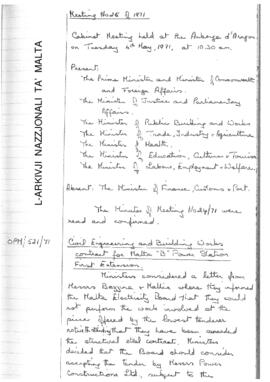 L-ARKIVJI NAZZJONALI TA' MALTA
Meeting No 25 of 1971
Cabinet Meeting held at the Auberge d'Aragon
on Tuesday 4th May, 1971, at 10.30 am.
Present:
The Prime Minister and Minister of Commonwealth
and Foreign Affairs.
The Minister of Justice and Parliamentary
Affairs.
The Minister of Public Building and Works
The Minister of Trade, Industry & Agriculture
The Minister of Health,
The Minister of Education, Culture & Tourism
The Minister of Labour, Employment & Welfare,
Absent: The Minister of Finance, Customs & Port.
The Minutes of Meeting No 24/71 were
read and confirmed.
OPM/521/71
Civil Engineering and Building Works
contract for Malta "B" Power Station
First Extension
Ministers considered a letter from
Messrs & where they informed
the Malta Electricity Board that they could
not perform the work involved at the
price offered by the lowest tenderer
notwithstanding that they have been awarded
the structural steel contract. Ministers
decided that the Board should consider
accepting the tender by Messrs Power
Constructions Ltd, subject to the